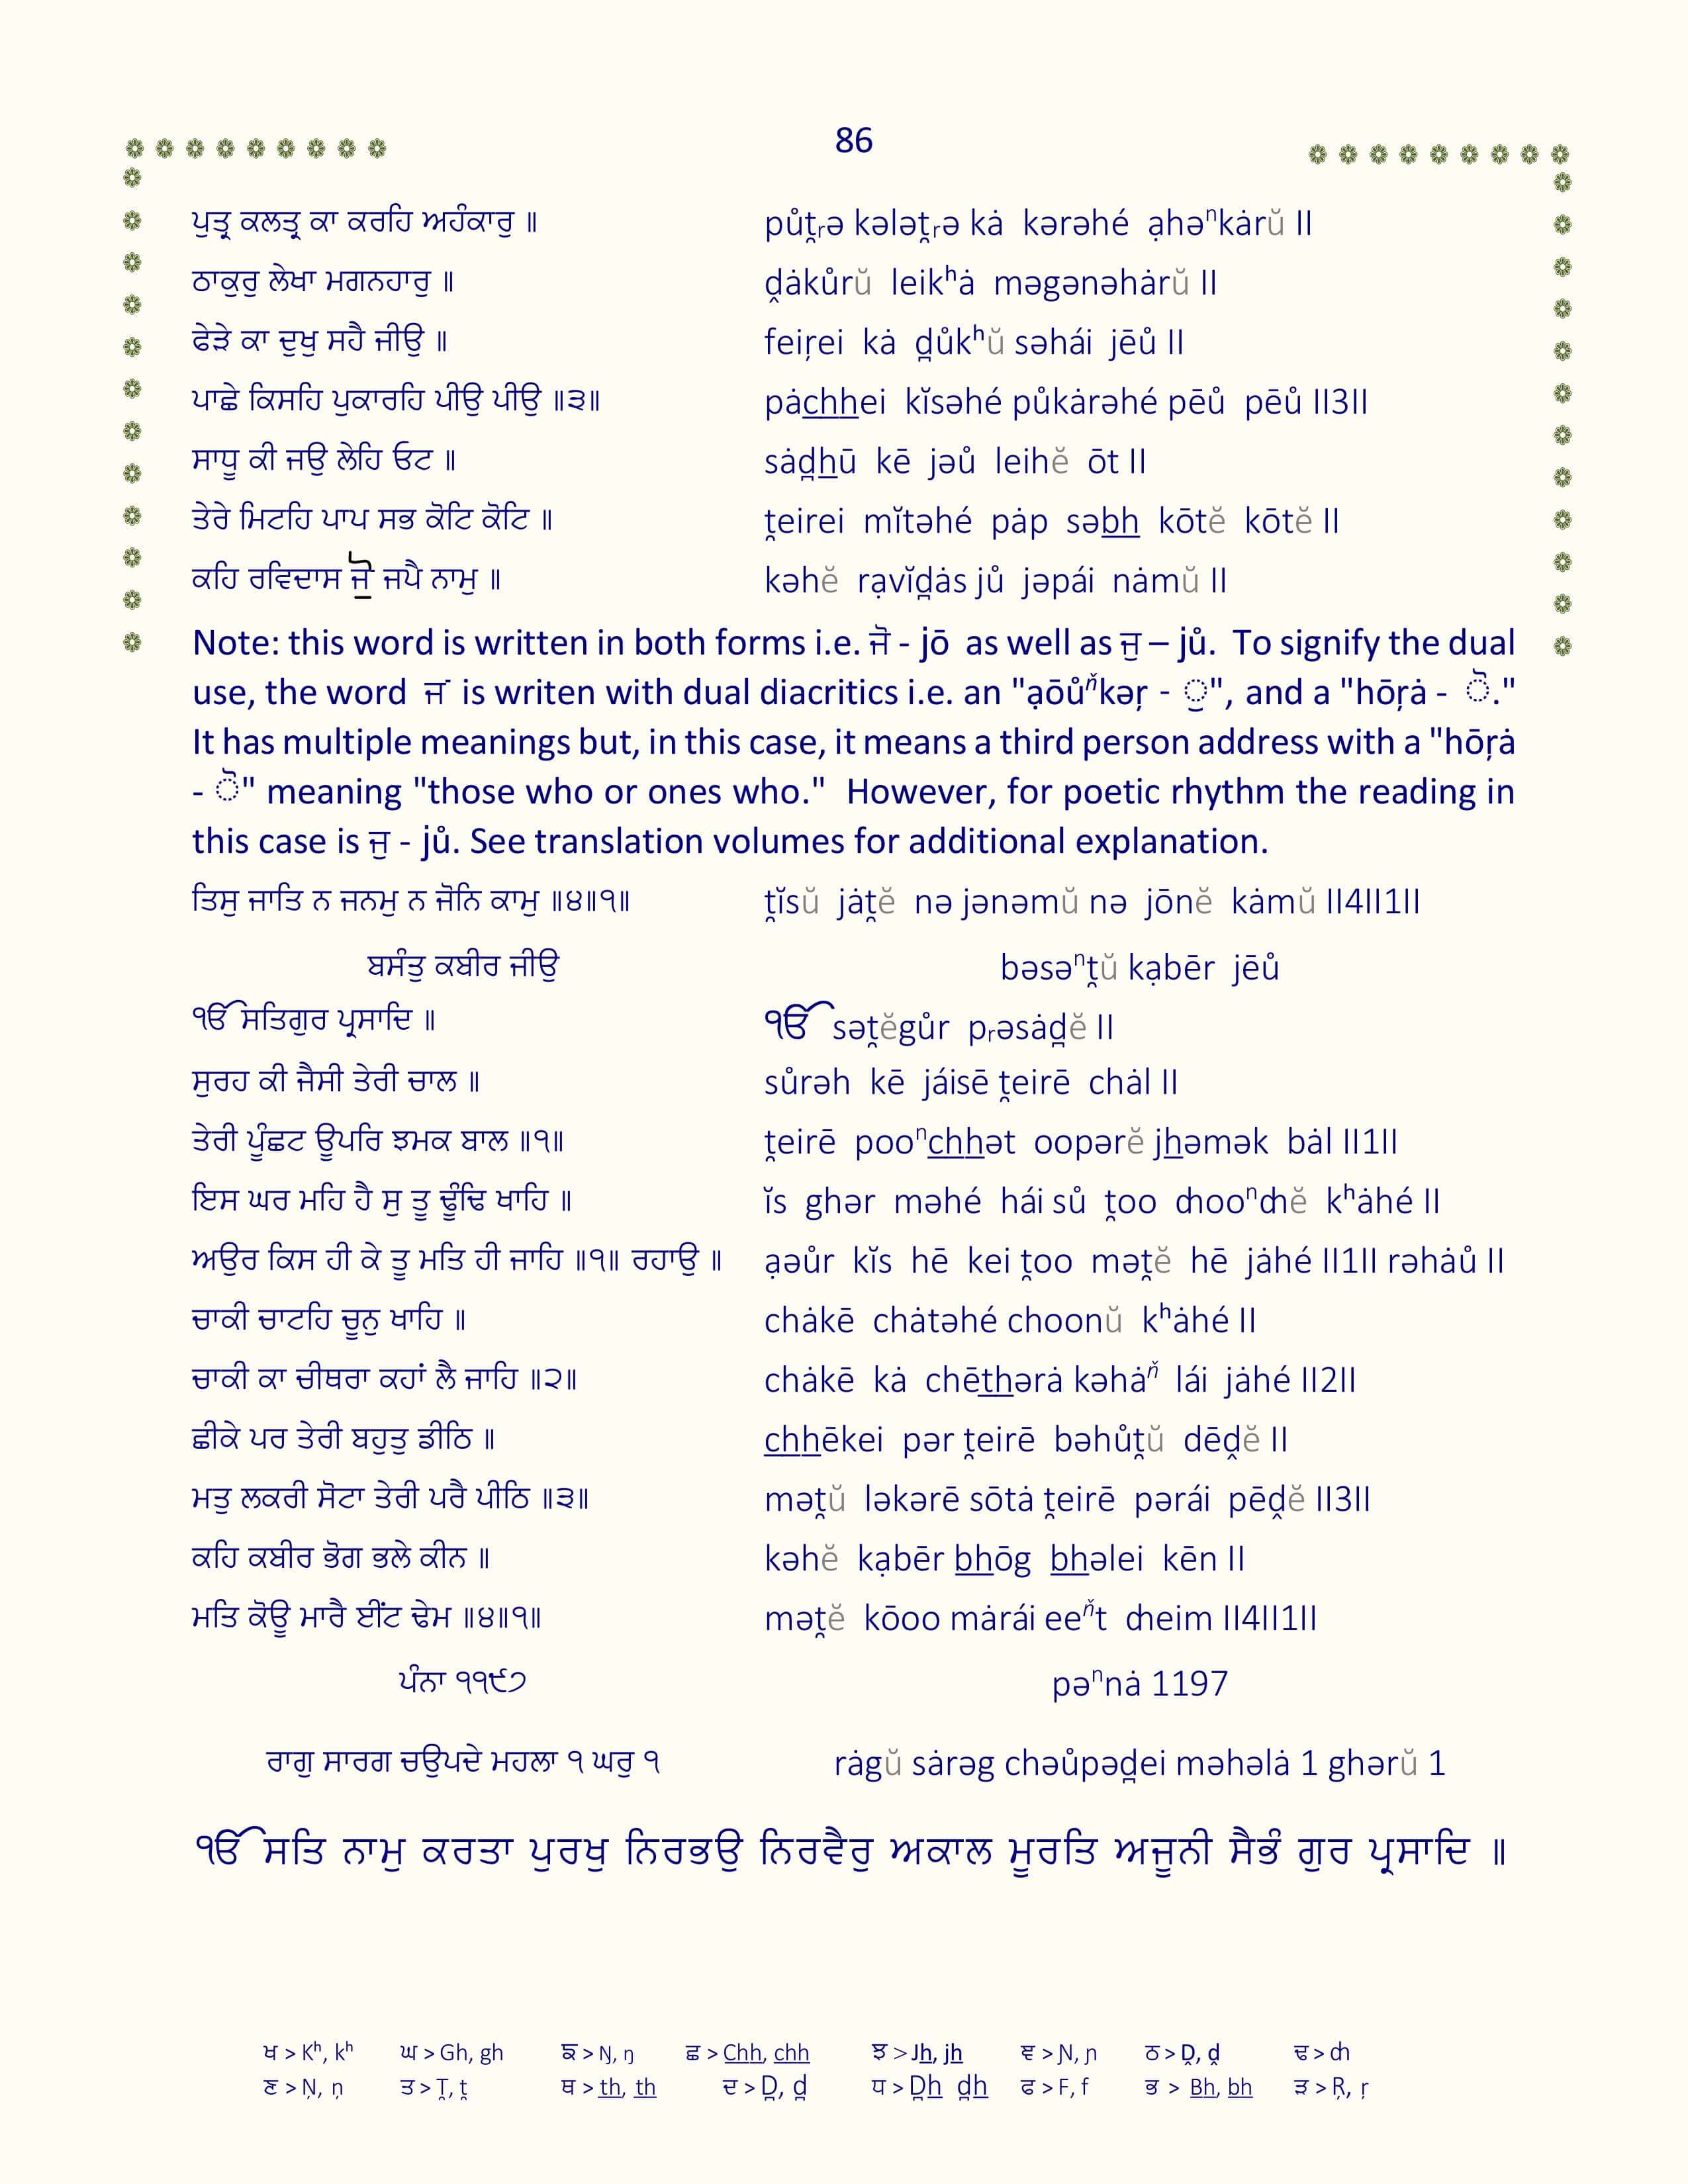 86
ਪੁਤ੍ਰ ਕਲਤ੍ਰ ਕਾ ਕਰਹਿ ਅਹੰਕਾਰੁ ॥ půt̯ᵣə kələt̯ᵣə kȧ kərəhé ạhəⁿkȧrŭ II
ਠਾਕੁਰੁ ਲੇਖਾ ਮਗਨਹਾਰੁ ॥ ḓȧkůrŭ leikʰȧ məgənəhȧrŭ II
ਫੇੜੇ ਕਾ ਦੁਖੁ ਸਹੈ ਜੀਉ ॥ feiŗei kȧ d̪ůkʰŭ səhái jēů II
ਪਾਛੇ ਕਿਸਹਿ ਪੁਕਾਰਹਿ ਪੀਉ ਪੀਉ ॥੩॥ pȧchhei kĭsəhé půkȧrəhé pēů pēů II3II
ਸਾਧੂ ਕੀ ਜਉ ਲੇਹਿ ਓਟ ॥ sȧd̪hū kē jəů leihĕ ōt II
ਤੇਰੇ ਮਿਟਹਿ ਪਾਪ ਸਭ ਕੋਟਿ ਕੋਟਿ ॥ t̯eirei mĭtəhé pȧp səbh kōtĕ kōtĕ II
ਕਹਿ ਰਵਿਦਾਸ ਜੋੁ ਜਪੈ ਨਾਮੁ ॥ kəhĕ rạvĭd̪ȧs jů jəpái nȧmŭ II
Note: this word is written in both forms i.e. ਜੋ - jō as well as ਜੁ – jů. To signify the dual
use, the word ਜ is writen with dual diacritics i.e. an "ạōůᶇ̌kəŗ - ੁ", and a "hōŗȧ - ੋ."
It has multiple meanings but, in this case, it means a third person address with a "hōŗȧ
- ੋ" meaning "those who or ones who." However, for poetic rhythm the reading in
this case is ਜੁ - jů. See translation volumes for additional explanation.
ਤਿਸੁ ਜਾਤਿ ਨ ਜਨਮੁ ਨ ਜੋਨਿ ਕਾਮੁ ॥੪॥੧॥ t̯ĭsŭ jȧt̯ĕ nə jənəmŭ nə jōnĕ kȧmŭ II4II1II
ਬਸੰਤੁ ਕਬੀਰ ਜੀਉ bəsəⁿt̯ŭ kạbēr jēů
ੴ ਸਤਿਗੁਰ ਪ੍ਰਸਾਦਿ ॥ ੴ sət̯ĕgůr pᵣəsȧd̪ĕ II
ਸੁਰਹ ਕੀ ਜੈਸੀ ਤੇਰੀ ਚਾਲ ॥ sůrəh kē jáisē t̯eirē chȧl II
ਤੇਰੀ ਪੂੰਛਟ ਊਪਰਿ ਝਮਕ ਬਾਲ ॥੧॥ t̯eirē pooⁿchhət oopərĕ jhəmək bȧl II1II
ਇਸ ਘਰ ਮਹਿ ਹੈ ਸੁ ਤੂ ਢੂੰਢਿ ਖਾਹਿ ॥ ĭs ghər məhé hái sů t̯oo ȸooⁿȸĕ kʰȧhé II
ਅਉਰ ਕਿਸ ਹੀ ਕੇ ਤੂ ਮਤਿ ਹੀ ਜਾਹਿ ॥੧॥ ਰਹਾਉ ॥ ạəůr kĭs hē kei t̯oo mət̯ĕ hē jȧhé II1II rəhȧů II
ਚਾਕੀ ਚਾਟਹਿ ਚੂਨੁ ਖਾਹਿ ॥ chȧkē chȧtəhé choonŭ kʰȧhé II
ਚਾਕੀ ਕਾ ਚੀਥਰਾ ਕਹਾਂ ਲੈ ਜਾਹਿ ॥੨॥ chȧkē kȧ chēthərȧ kəhȧⁿ̌ lái jȧhé II2II
ਛੀਕੇ ਪਰ ਤੇਰੀ ਬਹੁਤੁ ਡੀਠਿ ॥ chhēkei pər t̯eirē bəhůt̯ŭ dēḓĕ II
ਮਤੁ ਲਕਰੀ ਸੋਟਾ ਤੇਰੀ ਪਰੈ ਪੀਠਿ ॥੩॥ mət̯ŭ ləkərē sōtȧ t̯eirē pərái pēḓĕ II3II
ਕਹਿ ਕਬੀਰ ਭੋਗ ਭਲੇ ਕੀਨ ॥ kəhĕ kạbēr bhōg bhəlei kēn II
ਮਤਿ ਕੋਊ ਮਾਰੈ ਈਂਟ ਢੇਮ ॥੪॥੧॥ mət̯ĕ kōoo mȧrái eeⁿ̌t ȸeim II4II1II
ਪੰਨਾ ੧੧੯੭ pəⁿnȧ 1197
ਰਾਗੁ ਸਾਰਗ ਚਉਪਦੇ ਮਹਲਾ ੧ ਘਰੁ ੧ rȧgŭ sȧrəg chəůpəd̪ei məhəlȧ 1 ghərŭ 1
ੴ ਸਤਿ ਨਾਮੁ ਕਰਤਾ ਪੁਰਖੁ ਨਿਰਭਉ ਨਿਰਵੈਰੁ ਅਕਾਲ ਮੂਰਤਿ ਅਜੂਨੀ ਸੈਭੰ ਗੁਰ ਪ੍ਰਸਾਦਿ ॥
ਖ > Kʰ, kʰ ਘ > Gh, gh ਙ > Ŋ, ŋ ਛ > Chh, chh ਝ > Jh, jh ਞ > Ɲ, ɲ ਠ > Ḓ, ḓ ਢ > ȸ
ਣ > Ņ, ņ ਤ > T̯, t̯ ਥ > th, th ਦ > D̪, d̪ ਧ > D̪h d̪h ਫ > F, f ਭ > Bh, bh ੜ > Ŗ, ŗ